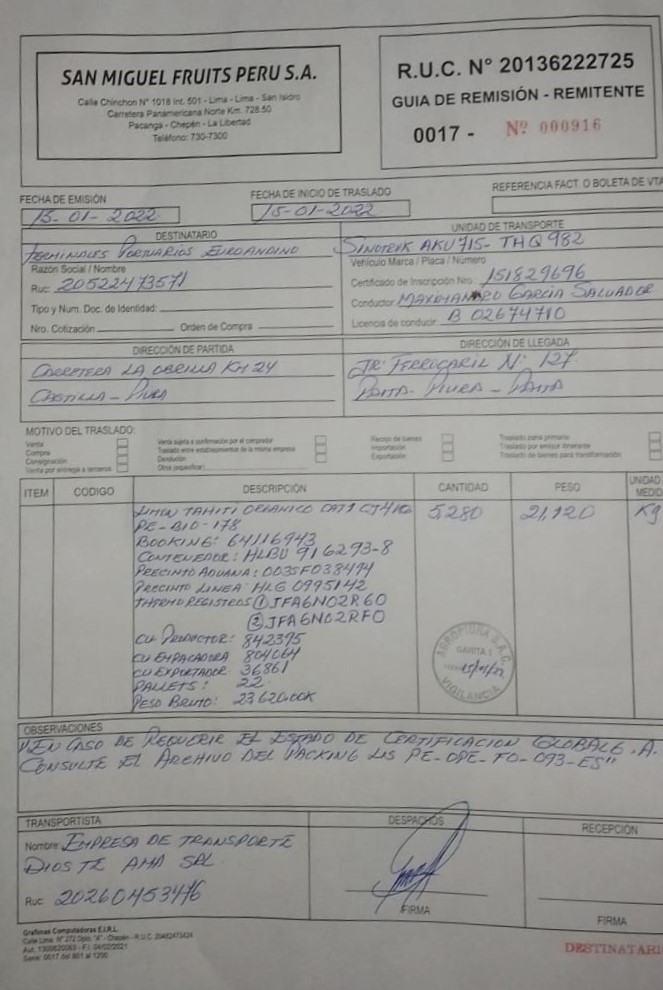 SAN MIGUEL FRUITS PERU S.A.
Calle Chinchon N° 1018 Int. 501 - Lima - Lima - San Isidro
Carretera Panamericana Norte Km. 728.50
Pacanga - Chepén - La Libertad
Teléfono: 730-7300
R.U.C. N° 20136222725
GUIA DE REMISIÓN - REMITENTE
0017 - Nº 000916
FECHA DE EMISIÓN
15-01-2022
FECHA DE INICIO DE TRASLADO
15-01-2022
REFERENCIA FACT. O BOLETA DE VTA
DESTINATARIO
TERMINALES PORTUARIOS EUROANDINO
Razón Social / Nombre
Ruc: 20522473571
Tipo y Num. Doc. de Identidad:
Nro. Cotización Orden de Compra
UNIDAD DE TRANSPORTE
SINOTRUK AKU 715- THQ 982
Vehículo Marca / Placa / Número
Certificado de Inscripción Nro. 151829696
Conductor MAXIMANDRO GARCIA SALVADOR
Licencia de conducir B 02674710
DIRECCIÓN DE PARTIDA
CARRETERA LA OBRILLA KM 24
CASTILLA - PIURA
DIRECCIÓN DE LLEGADA
JR. FERROCARIL N° 127
PAITA- PIURA - PAITA
MOTIVO DEL TRASLADO:
Venta
Compra
Consignación
Venta por entrega a terceros
Venta sujeta a confirmación por el comprador
Traslado entre establecimientos de la misma empresa
Devolución
Otros (especificar)
Recojo de bienes
Importación
Exportación
Traslado zona primaria
Traslado por emisor itinerante
Traslado de bienes para transformación
ITEM CODIGO DESCRIPCIÓN CANTIDAD PESO UNIDAD MEDID
LIMON TAHITI ORGANICO CAT1 CJ4KG 5,280 21,120 Kg
PE-BIO-178
BOOKING: 64116943
CONTENEDOR: HLBU 916293-8
PRECINTO ADUANA: 0035F038494
PRECINTO LINEA: HLG 0995142
THERMOREGISTROS ① JFA6N02R60
② JFA6N02RF0
CU PRODUCTOR: 842395
CU EMPACADORA 804064
CU EXPORTADOR 36861
PALLETS: 22
PESO BRUTO: 23,620.00K
AGROPIURA S.A.C.
GARITA 1
15/01/22
VIGILANCIA
OBSERVACIONES
"EN CASO DE REQUERIR EL ESTADO DE CERTIFICACION GLOBALG.A.
CONSULTE EL ARCHIVO DEL PACKING LIS PE-OPE-FO-093-ES"
TRANSPORTISTA
Nombre EMPRESA DE TRANSPORTE
DIOS TE AMA SRL
Ruc 20260453476
DESPACHOS
FIRMA
RECEPCIÓN
FIRMA
Grafimas Computadoras E.I.R.L.
Calle Lima N° 272 Dpto. "A" - Chepén - R.U.C. 20482473424
Aut. 1300620063 - F.I. 04/02/2021
Serie: 0017 del 801 al 1200
DESTINATARI